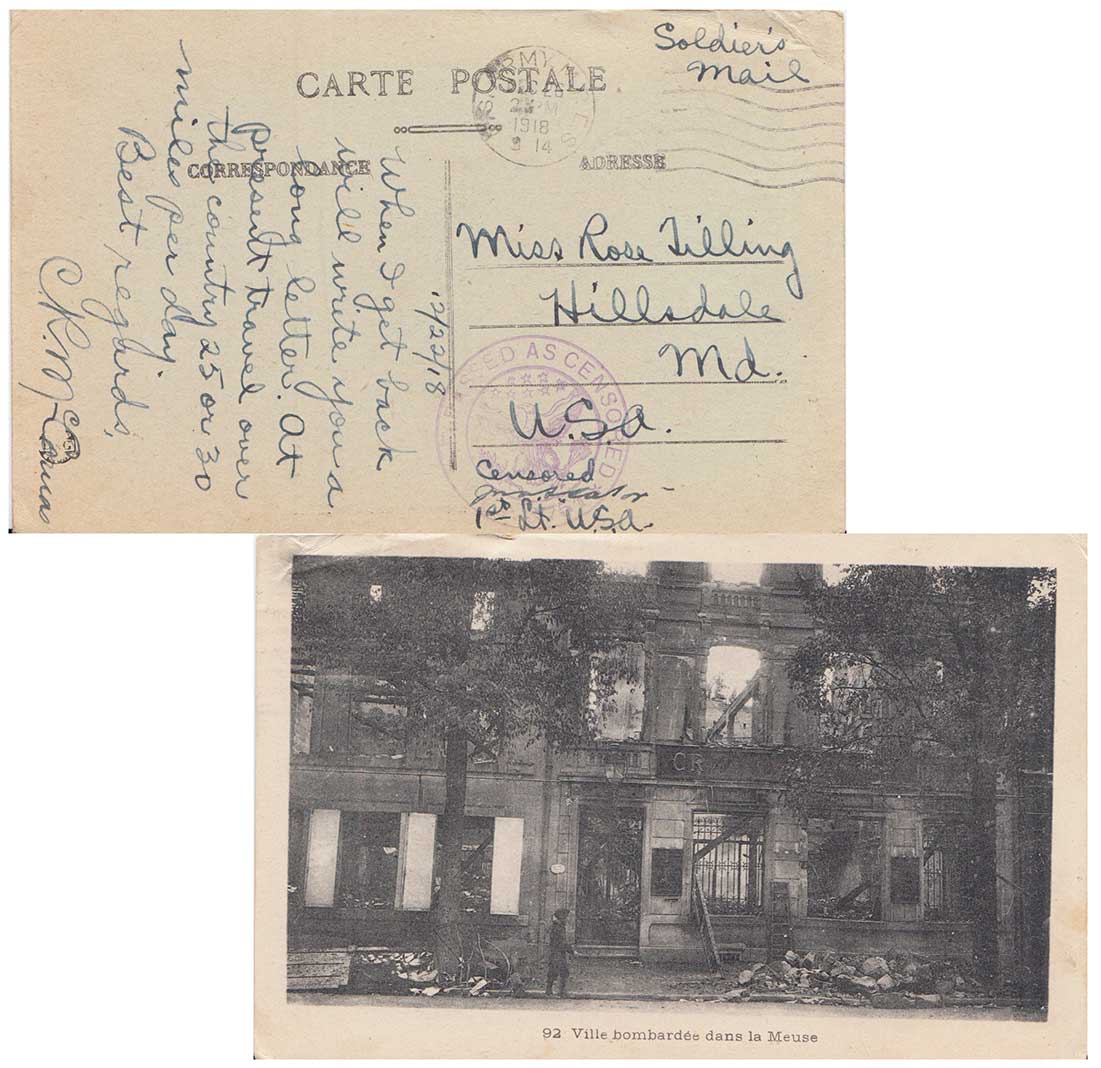 Soldier's
Mail
CARTE POSTALE
1918
CORRESPONDANCE
ADRESSE
12/22/18
When I get back
will write you a
long letter. At
present travel over
the country 25 or 30
miles per day.
Best regards,
Miss Rose Tilling
Hillsdale
Md.
U.S.A.
PASSED AS CENSORED
Censored
1st Lt. U.S.A.
CR
92 Ville bombardée dans la Meuse